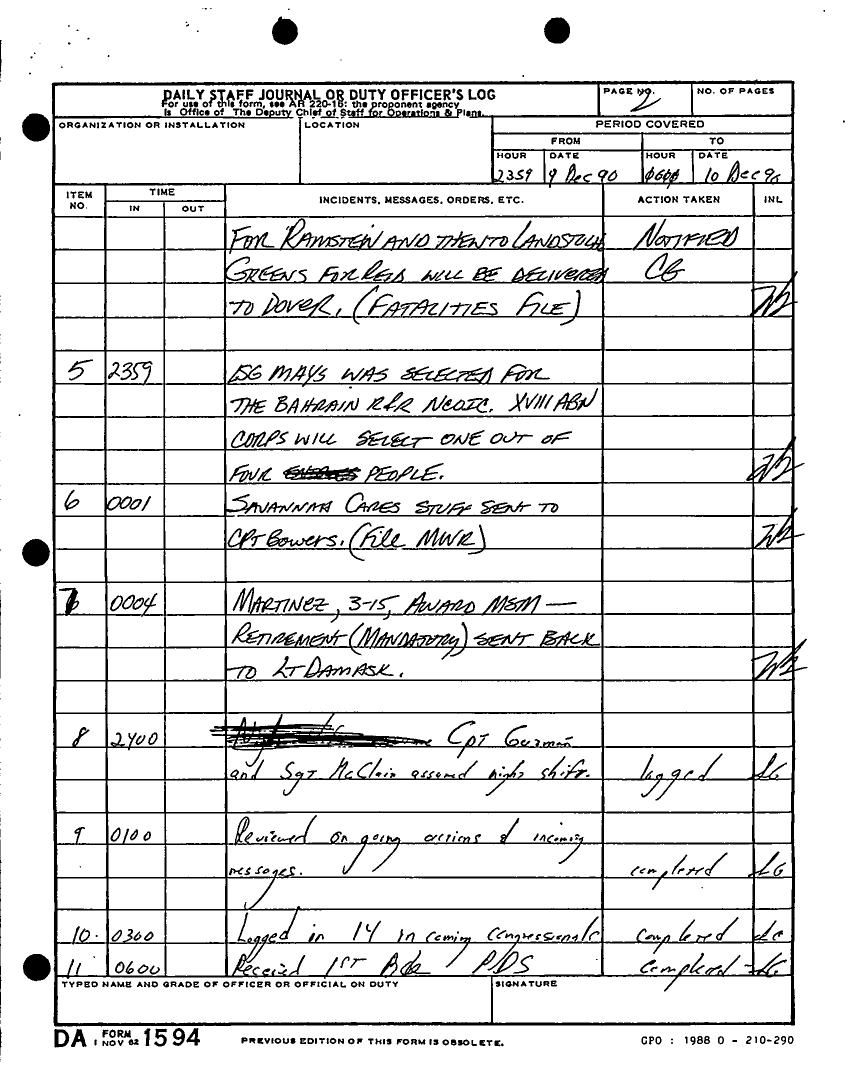 DAILY STAFF JOURNAL OR DUTY OFFICER'S LOG
For use of this form, see AR 220-15: the proponent agency
is Office of The Deputy Chief of Staff for Operations & Plans.
PAGE NO. 2
NO. OF PAGES
ORGANIZATION OR INSTALLATION
LOCATION
PERIOD COVERED
FROM TO
HOUR DATE HOUR DATE
2359 9 Dec 90 0600 10 Dec 90
ITEM NO. TIME IN OUT INCIDENTS, MESSAGES, ORDERS, ETC. ACTION TAKEN INL
FOR RAMSTEIN AND THEN TO LANDSTUCH NOTIFIED
GREENS FOR REID WILL BE DELIVERED CG
TO DOVER. (FATALITIES FILE)
5 2359 1SG MAYS WAS SELECTED FOR
THE BAHRAIN R&R NCOIC. XVIII ABN
CORPS WILL SELECT ONE OUT OF
FOUR PEOPLE.
6 0001 SAVANNAH CARES STUFF SENT TO
CPT Bowers. (File MWR)
7 0004 MARTINEZ, 3-15, AWARD MSM —
RETIREMENT (MANDATORY) SENT BACK
TO LT DAMASK.
8 2400 CPT Guzman
and Sgt McClain assumed night shift. logged LG
9 0100 Reviewed on going actions & incoming
messages. completed LG
10. 0300 Logged in 14 in coming congressionals completed LG
11 0600 Received 1ST Bde PDS completed LG
TYPED NAME AND GRADE OF OFFICER OR OFFICIAL ON DUTY
SIGNATURE
DA FORM 1 NOV 62 1594
PREVIOUS EDITION OF THIS FORM IS OBSOLETE.
GPO : 1988 O - 210-290